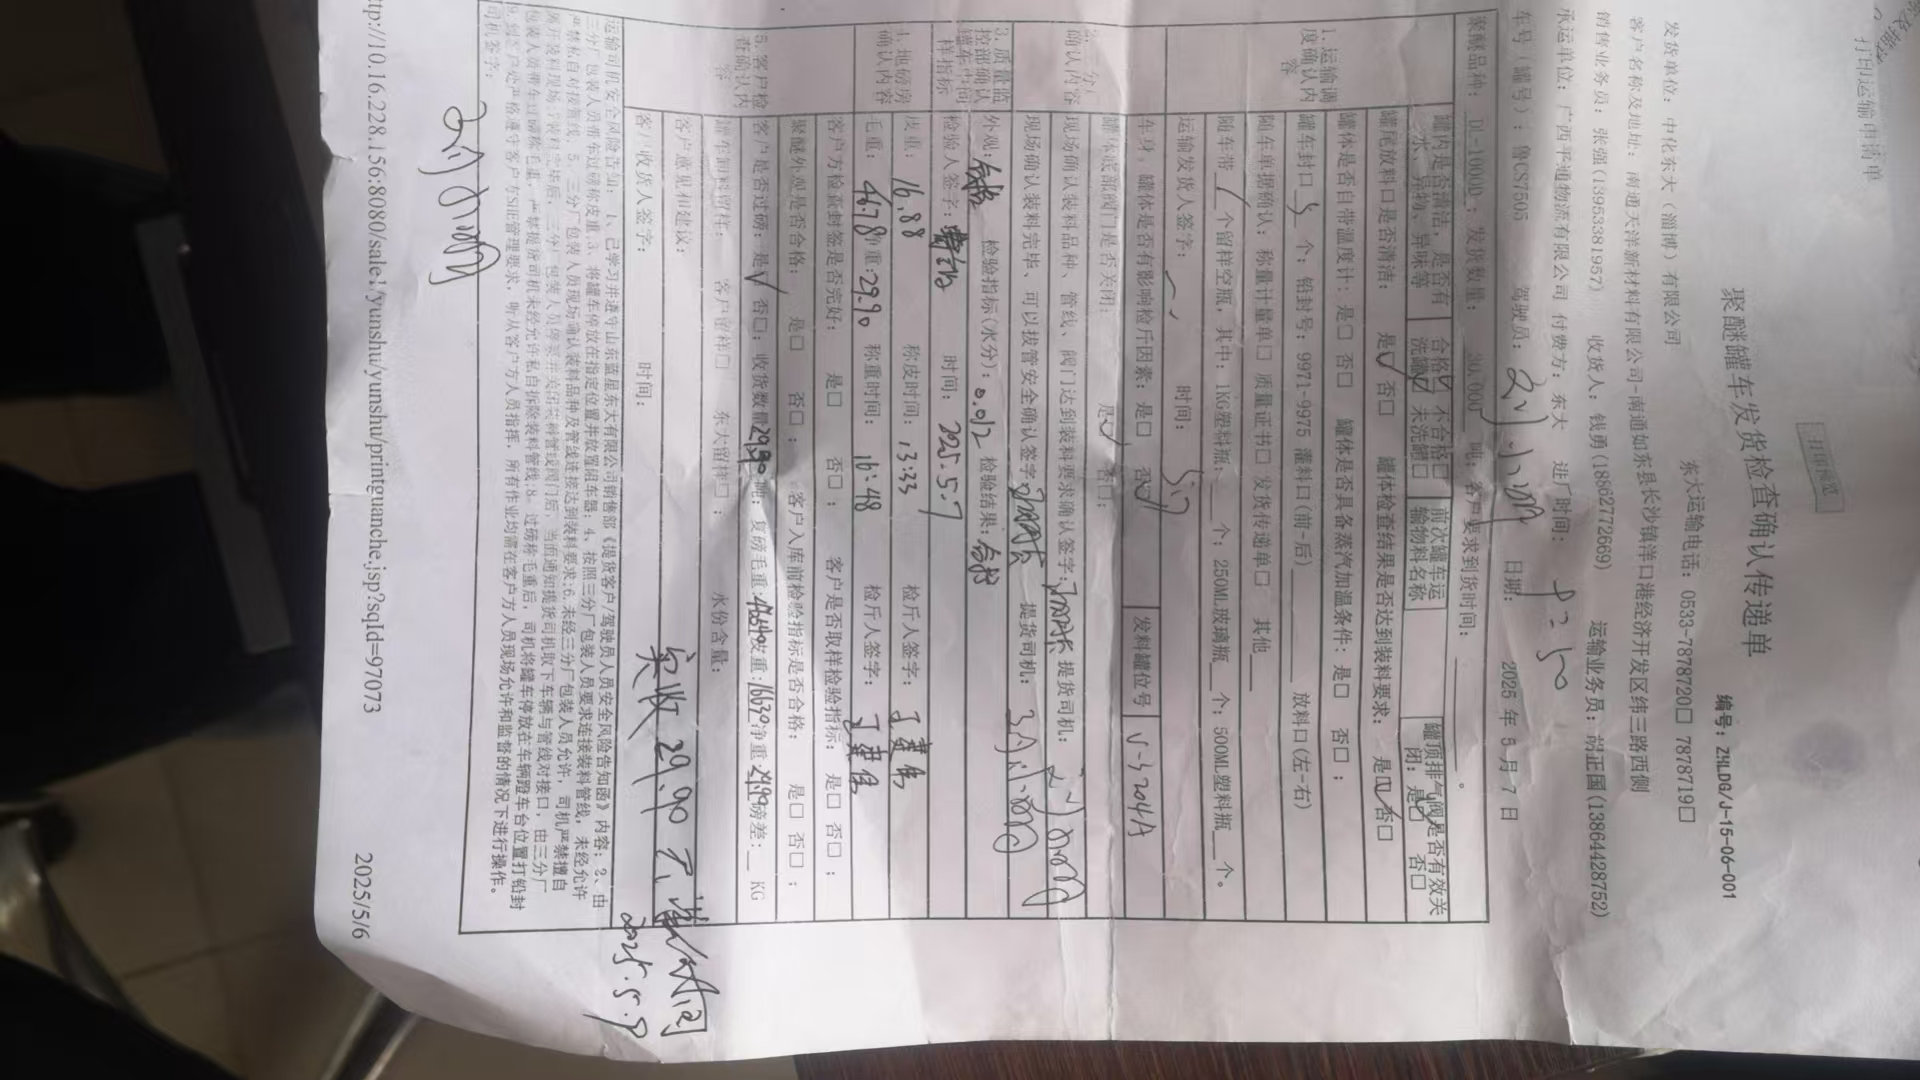 打印运输申请单
打印预览
聚醚罐车发货检查确认传递单
编号: ZHLDG/J-15-06-001
发货单位: 中化东大(淄博)有限公司 东大运输电话: 0533-7878720□ 7878719□
客户名称及地址: 南通天洋新材料有限公司-南通如东县长沙镇洋口港经济开发区纬三路西侧
销售业务员: 张强(13953381957) 收货人: 钱勇(18862772669) 运输业务员: 胡正国(13864428752)
承运单位: 广西平通物流有限公司 付费方: 东大 进厂时间:
车号(罐号): 鲁CS7505 驾驶员: 刘小明 日期: 2025 年 5 月 7 日
聚醚品种: DL-1000D; 发货数量: 30.000 吨; 客户要求到货时间: 。
1.运输调度确认内容
罐内是否清洁,是否有水、异物、异味等 合格☑ 不合格□ 洗罐☑ 未洗罐□ 前次罐车运输物料名称 罐顶排气阀是否有效关闭: 是☑ 否□
罐尾放料口是否清洁: 是☑ 否□ 罐体检查结果是否达到装料要求: 是☑ 否□
罐体是否自带温度计: 是□ 否□ 罐体是否具备蒸汽加温条件: 是□ 否□;
罐车封口 5 个; 铅封号: 9971-9975 灌料口(前-后) 放料口(左-右)
随车单据确认: 称量计量单□ 质量证书□ 发货传递单□ 其他
随车带 / 个留样空瓶, 其中: 1KG塑料瓶 个; 250ML玻璃瓶 个; 500ML塑料瓶 个。
运输发货人签字: 时间:
车身、罐体是否有影响检斤因素: 是□ 否☑ 发料罐位号 V-5204A
罐体底部阀门是否关闭: 是☑ 否□;
现场确认装料品种、管线、阀门达到装料要求确认签字: 提货司机: 刘小明
现场确认装料完毕、可以拔管安全确认签字: 提货司机: 刘小明
外观: 合格 检验指标(水分): 0.012 检验结果: 合格
检验人签字: 时间: 2025.5.7
4.地磅房确认内容
皮重: 16.88 称皮时间: 13:33 检斤人签字:
毛重: 46.78 净重: 29.90 称重时间: 16:48 检斤人签字:
5.客户检查确认内容
客户方检查封签是否完好: 是□ 否□; 客户是否取样检验指标: 是□ 否□;
聚醚外观是否合格: 是□ 否□; 客户入库前检验指标是否合格: 是□ 否□;
客户是否过磅: 是☑ 否□; 收货数量 29.90 吨; 复磅毛重: 皮重: 16630 净重: 磅差: KG
罐车卸料留样: 客户留样□ 东大留样□; 水份含量:
客户意见和建议:
实收 29.90 T
客户收货人签字: 时间: 2025.5.9
运输司机安全风险告知: 1、已学习并遵守山东蓝星东大有限公司销售部《提货客户/驾驶员人员安全风险告知函》内容; 2、由
三分厂包装人员带车过磅称皮重,3、将罐车停放在指定位置并放置阻车器; 4、按照三分厂包装人员要求连接装料管线, 未经允许
严禁私自对接管线, 5、三分厂包装人员现场确认装料品种及管线连接达到装料要求;6.未经三分厂包装人员允许, 司机严禁擅自
包装人员带车过磅称毛重, 严禁提货司机未经允许私自拆除装料管线;8、过磅称毛重后, 司机将罐车停放在车辆蹬车台位置打铅封
9.到客户处严格遵守客户方HSE管理要求, 听从客户方人员指挥, 所有作业均需在客户方人员现场允许和监督的情况下进行操作。
司机签字:
刘小明
ttp://10.16.228.156:8080/sale1/yunshu/yunshu/printguanche.jsp?sqId=97073
2025/5/6